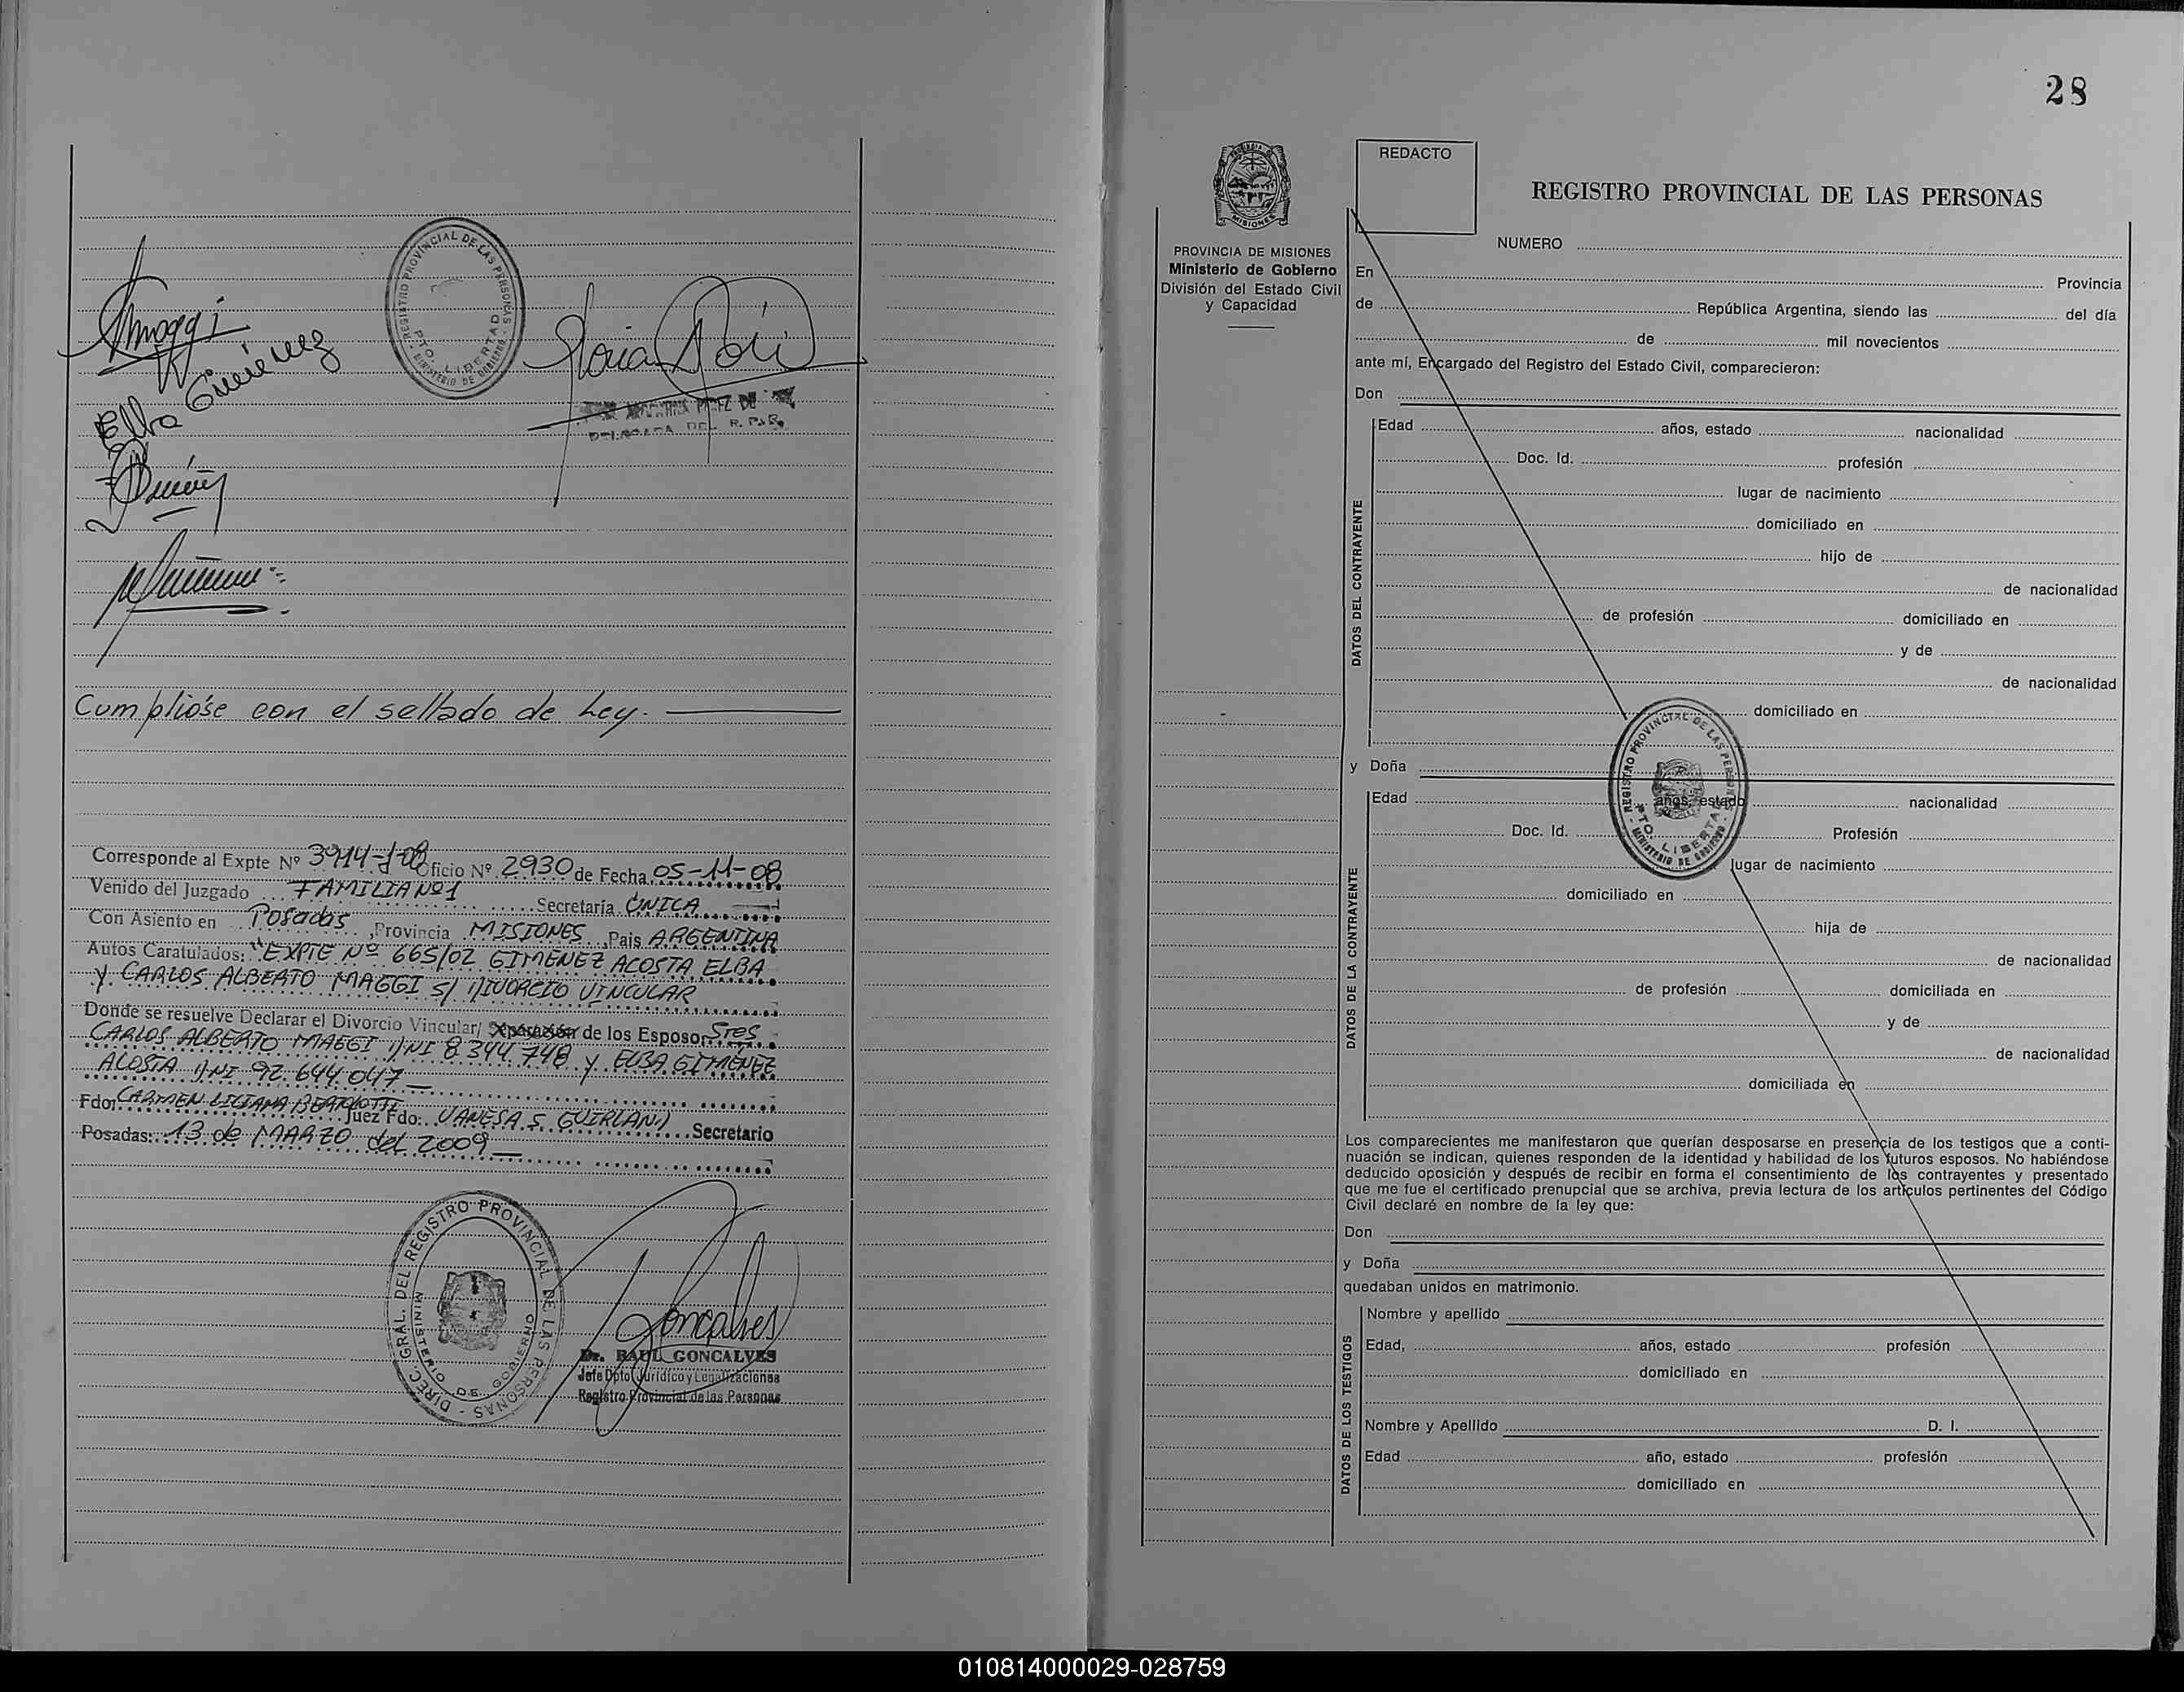 Amaggi
Elba Giménez
REGISTRO PROVINCIAL DE LAS PERSONAS
PTO. LIBERTAD
MINISTERIO DE GOBIERNO
DELEGADA DEL R. P. P.
Cumplióse con el sellado de Ley.
Corresponde al Expte Nº 3914-J-08 Oficio Nº 2930 de Fecha 05-11-08
Venido del Juzgado FAMILIA Nº1 Secretaría ÚNICA
Con Asiento en Posadas, Provincia MISIONES, Pais ARGENTINA
Autos Caratulados: "EXPTE Nº 665/02 GIMENEZ ACOSTA ELBA
Y CARLOS ALBERTO MAGGI S/ DIVORCIO VINCULAR
Donde se resuelve Declarar el Divorcio Vincular/ Separación de los Esposos Sres
CARLOS ALBERTO MAGGI DNI 8.344.748 y ELBA GIMÉNEZ
ACOSTA DNI 92.644.047
Fdo: CARMEN LILIANA Juez Fdo: VANESA S. Secretario
Posadas: 13 de MARZO del 2009
DIREC. GRAL. DEL REGISTRO PROVINCIAL DE LAS PERSONAS
MINISTERIO DE GOBIERNO
Goncalves
Dr. RAUL GONCALVES
Jefe Dpto Jurídico y Legalizaciones
Registro Provincial de las Personas
28
PROVINCIA DE MISIONES
Ministerio de Gobierno
División del Estado Civil
y Capacidad
REDACTO
REGISTRO PROVINCIAL DE LAS PERSONAS
NUMERO
En Provincia
de República Argentina, siendo las del día
de mil novecientos
ante mí, Encargado del Registro del Estado Civil, comparecieron:
Don
DATOS DEL CONTRAYENTE
Edad años, estado nacionalidad
Doc. Id. profesión
lugar de nacimiento
domiciliado en
hijo de
de nacionalidad
de profesión domiciliado en
y de
de nacionalidad
domiciliado en
REGISTRO PROVINCIAL DE LAS PERSONAS
PTO. LIBERTAD
MINISTERIO DE GOBIERNO
y Doña
DATOS DE LA CONTRAYENTE
Edad años, estado nacionalidad
Doc. Id. Profesión
lugar de nacimiento
domiciliado en
hija de
de nacionalidad
de profesión domiciliada en
y de
de nacionalidad
domiciliada en
Los comparecientes me manifestaron que querían desposarse en presencia de los testigos que a conti-
nuación se indican, quienes responden de la identidad y habilidad de los futuros esposos. No habiéndose
deducido oposición y después de recibir en forma el consentimiento de los contrayentes y presentado
que me fue el certificado prenupcial que se archiva, previa lectura de los artículos pertinentes del Código
Civil declaré en nombre de la ley que:
Don
y Doña
quedaban unidos en matrimonio.
DATOS DE LOS TESTIGOS
Nombre y apellido
Edad, años, estado profesión
domiciliado en
Nombre y Apellido D. I.
Edad año, estado profesión
domiciliado en
010814000029-028759